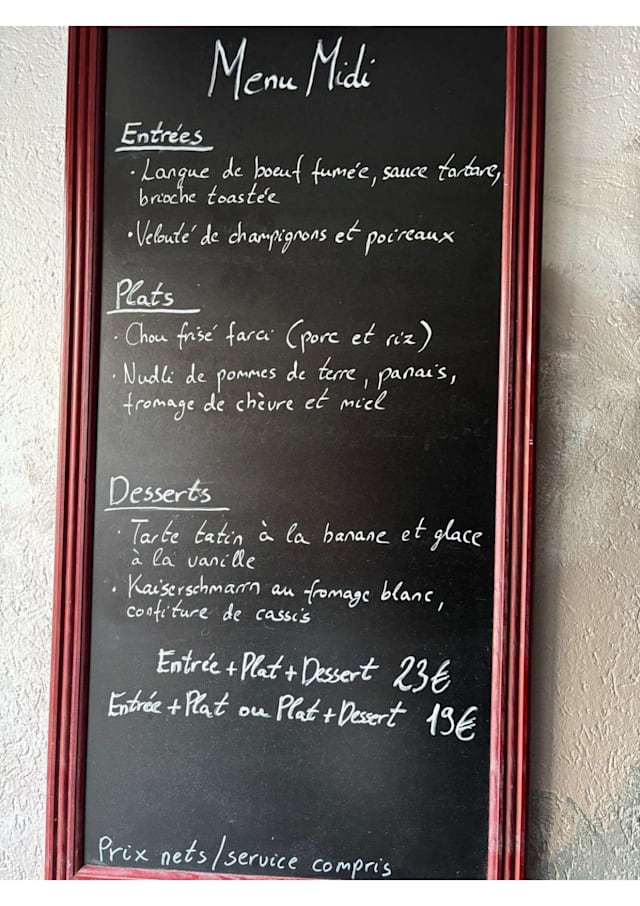 Menu Midi
Entrées
· Langue de boeuf fumée, sauce tartare,
brioche toastée
· Velouté de champignons et poireaux
Plats
· Chou frisé farci (porc et riz)
· Nudli de pommes de terre, panais,
fromage de chèvre et miel
Desserts
· Tarte tatin à la banane et glace
à la vanille
· Kaiserschmarrn au fromage blanc,
confiture de cassis
Entrée + Plat + Dessert 23€
Entrée + Plat ou Plat + Dessert 19€
Prix nets/service compris